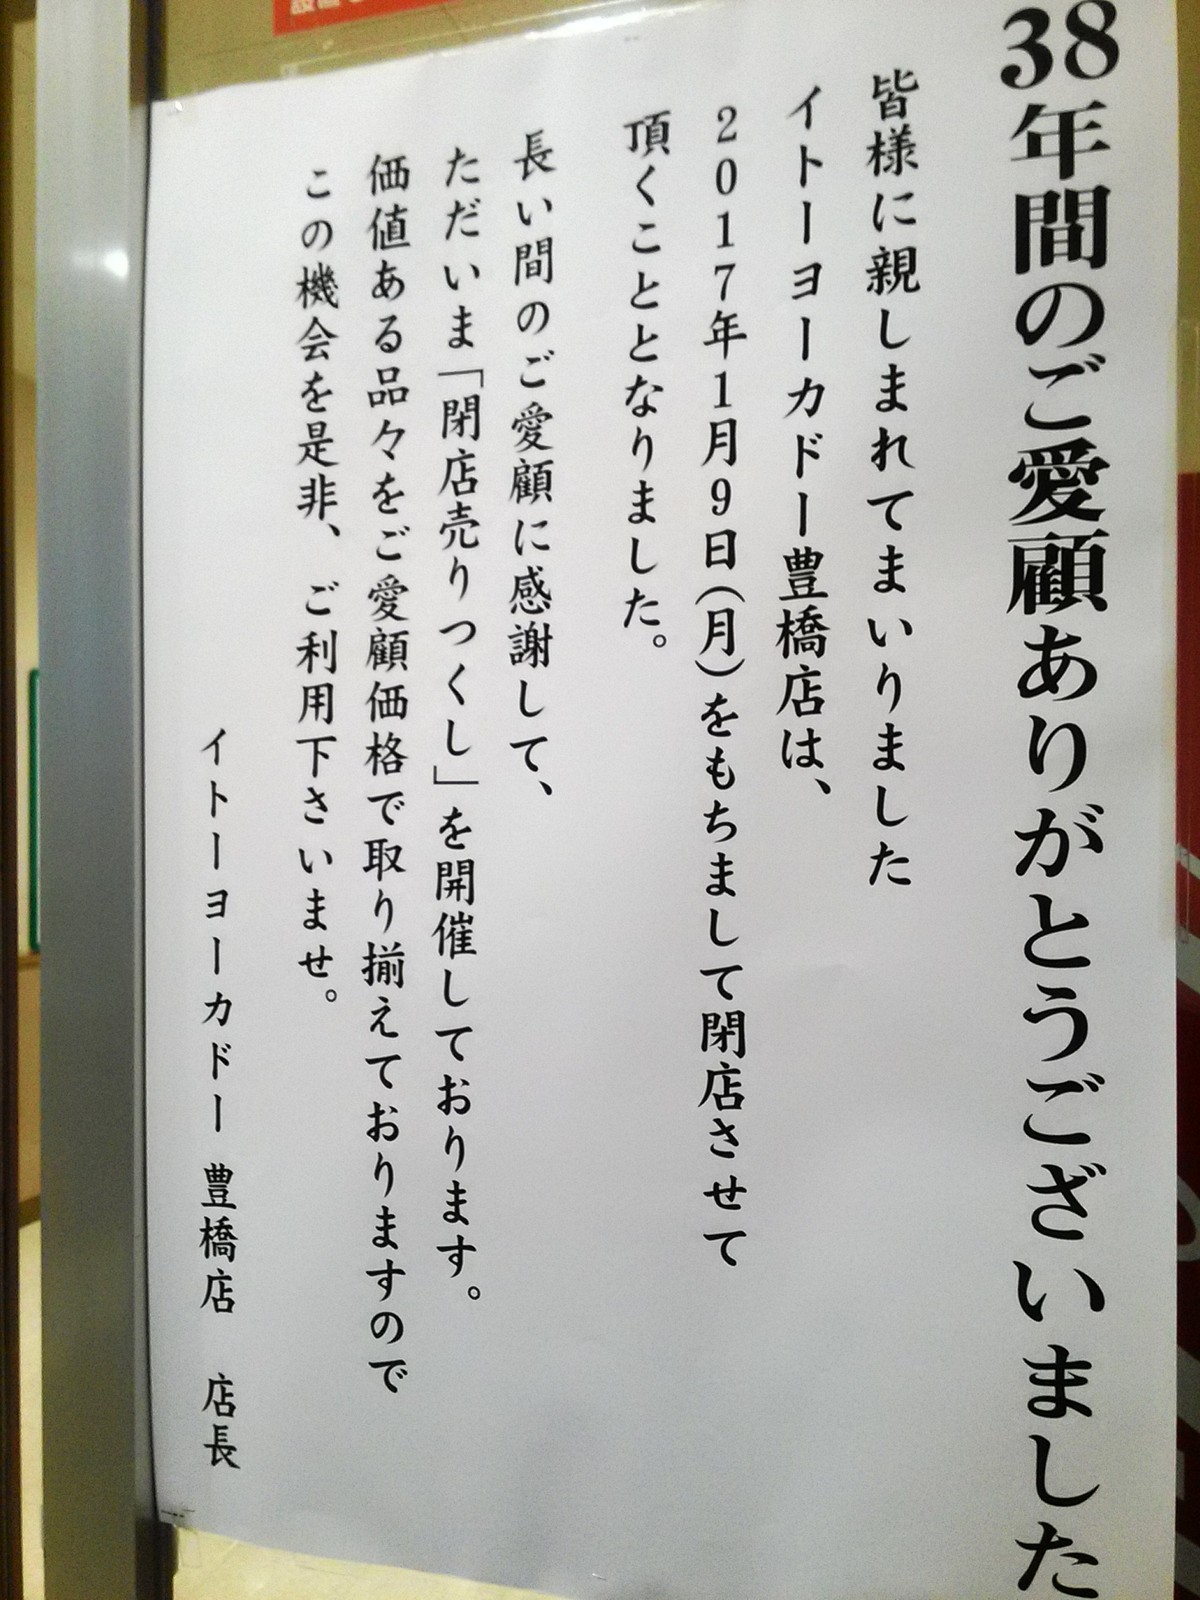 38年間のご愛顧ありがとうございました
皆様に親しまれてまいりました
イトーヨーカドー豊橋店は、
2017年1月9日(月)をもちまして閉店させて
頂くこととなりました。
長い間のご愛顧に感謝して、
ただいま「閉店売りつくし」を開催しております。
価値ある品々をご愛顧価格で取り揃えておりますので
この機会を是非、ご利用下さいませ。
イトーヨーカドー 豊橋店 店長